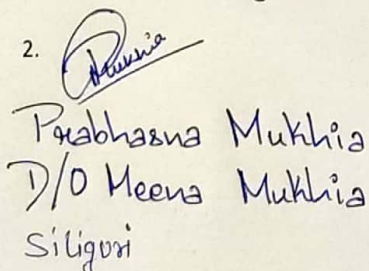 2. PMukhia
Prabhasna Mukhia
D/O Meena Mukhia
Siliguri